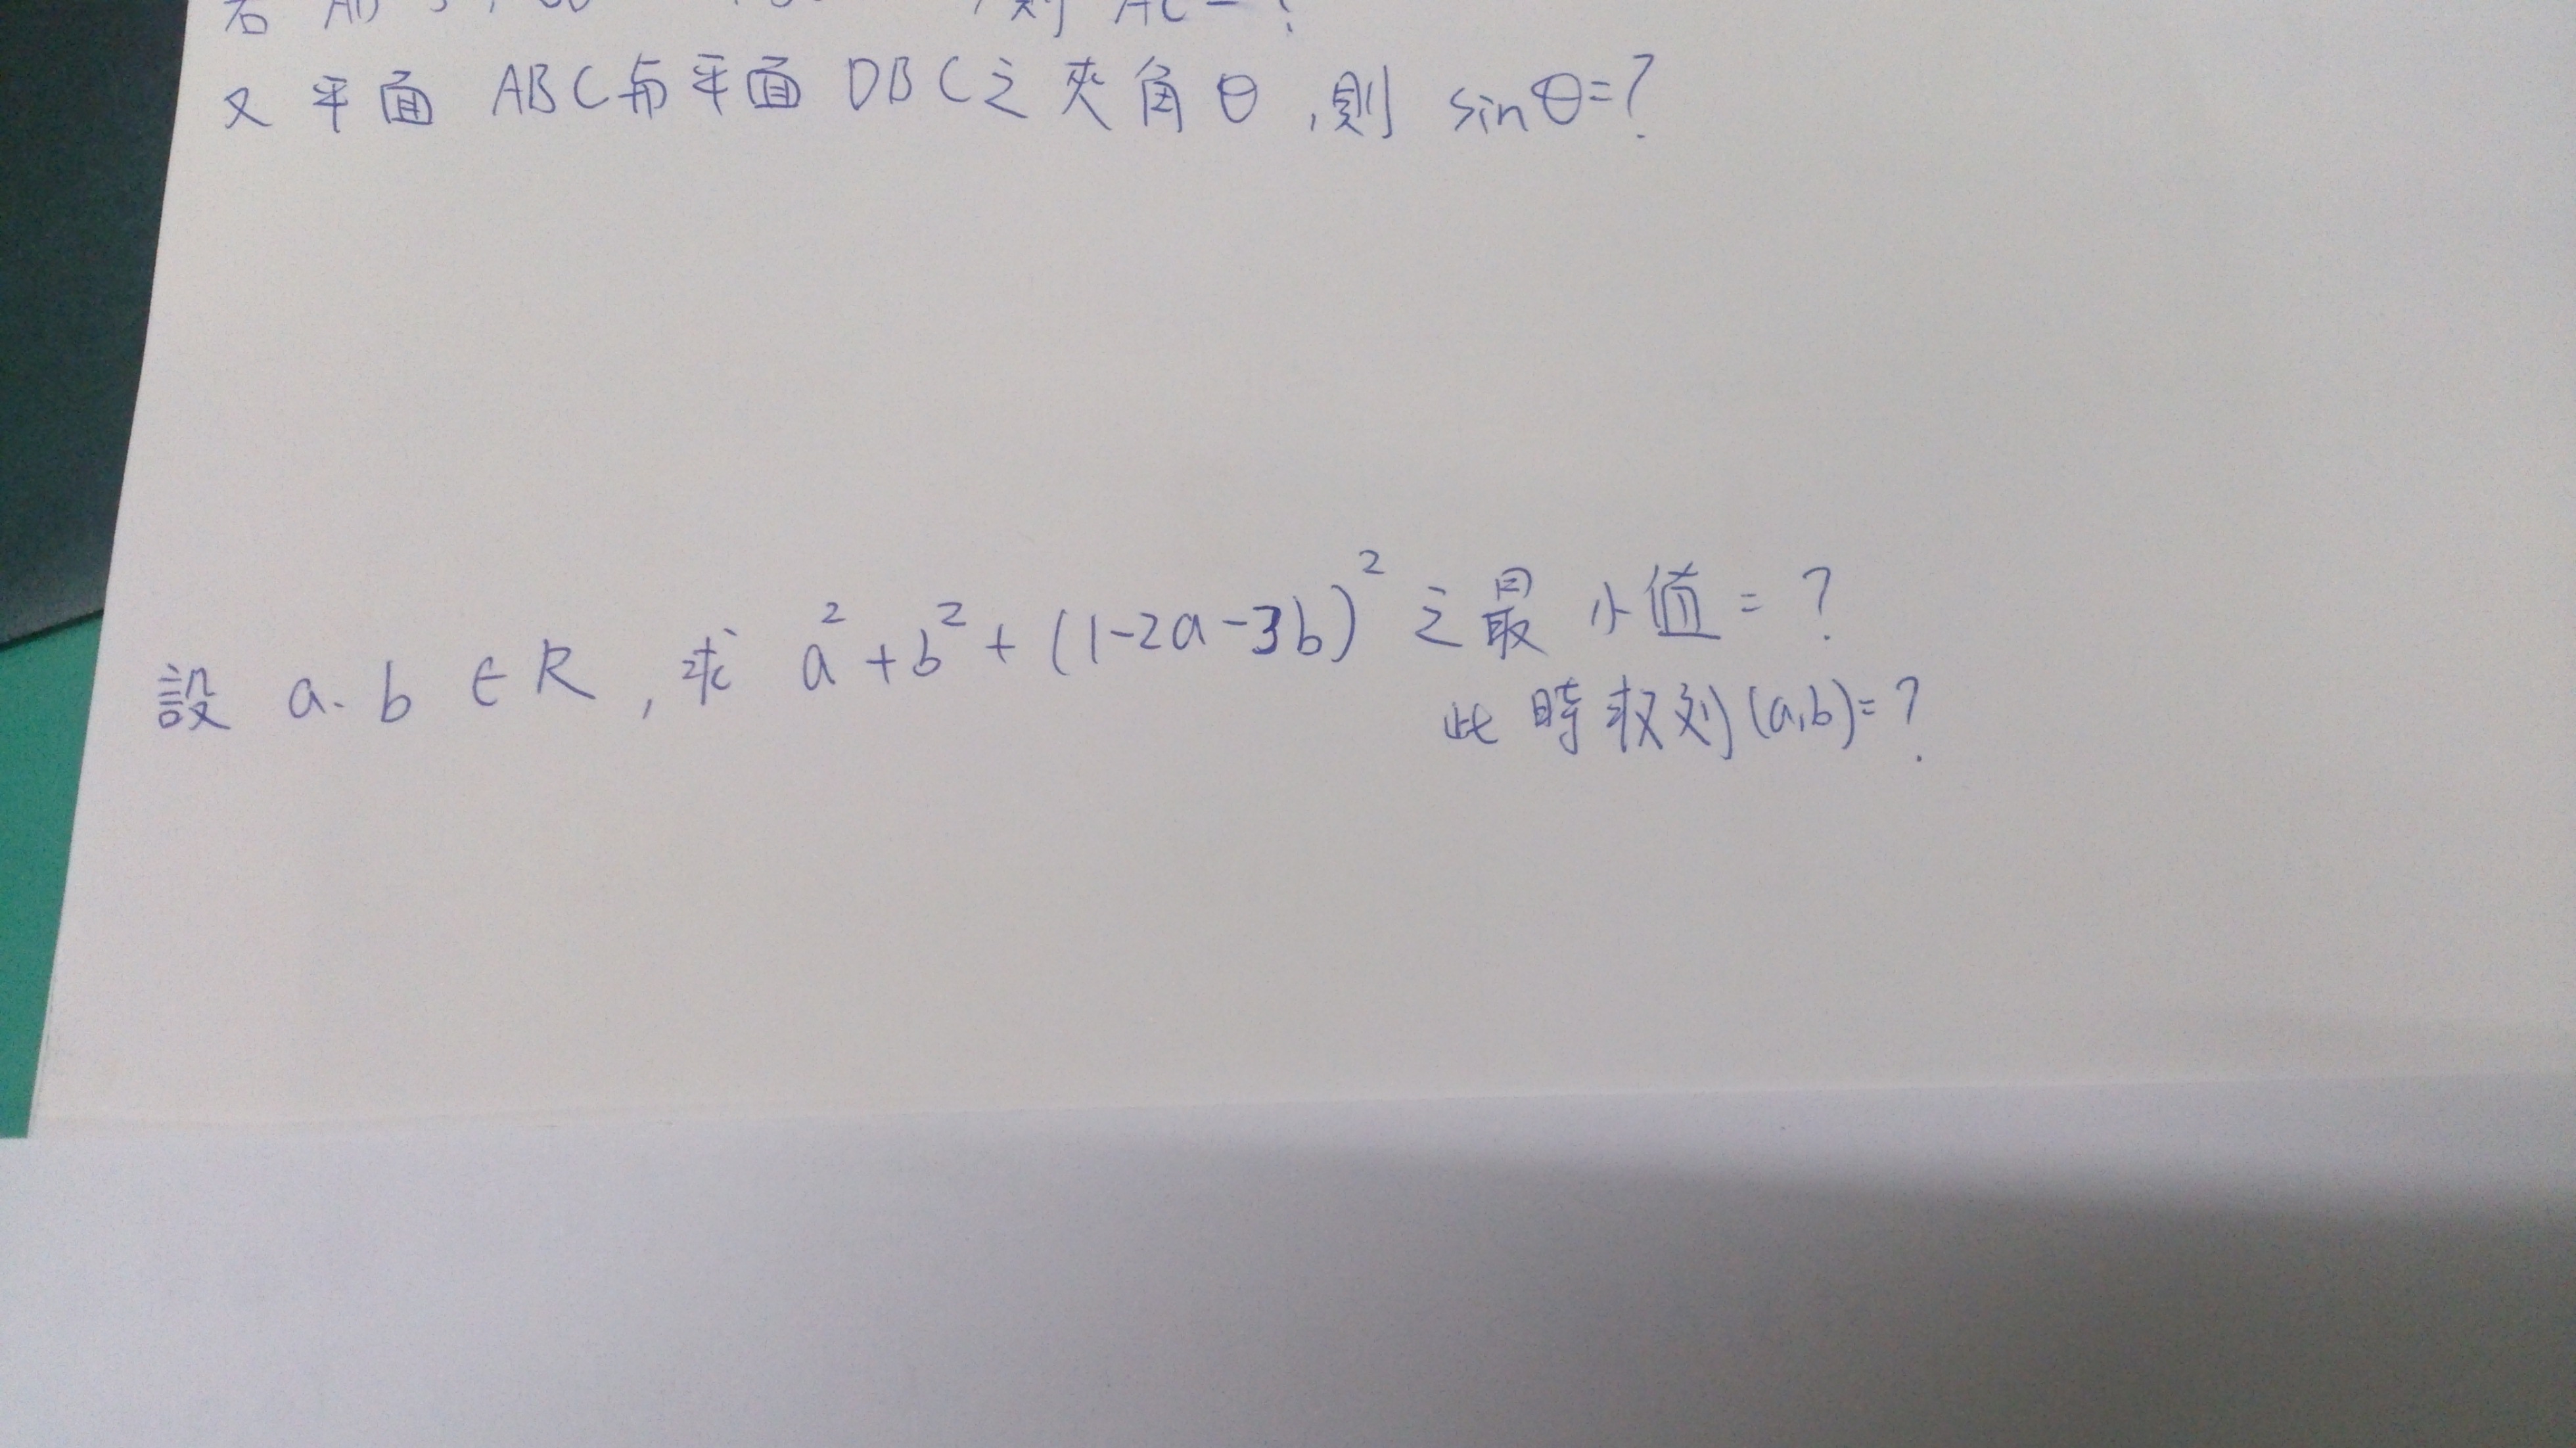 則 AC = ?
又平面 ABC与平面 DBC之夾角θ,則 sinθ=?
設 a.b ∈R,求 a²+b²+(1-2a-3b)² 之最小值=?
此時数対(a,b)=?